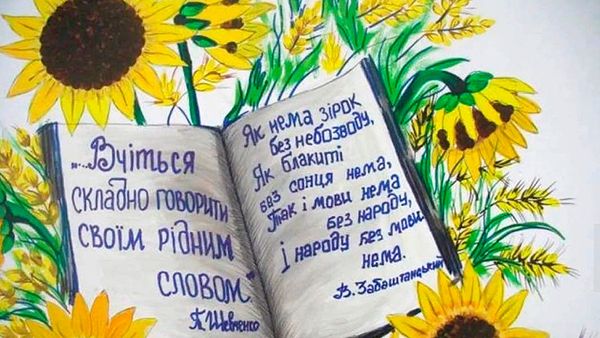 „...Вчіться
складно говорити
своїм рідним
словом"
Т. Шевченко
Як нема зірок
без небозводу,
Як блакиті
без сонця нема,
Так і мови нема
без народу,
і народу без мови
нема.
В. Забаштанський